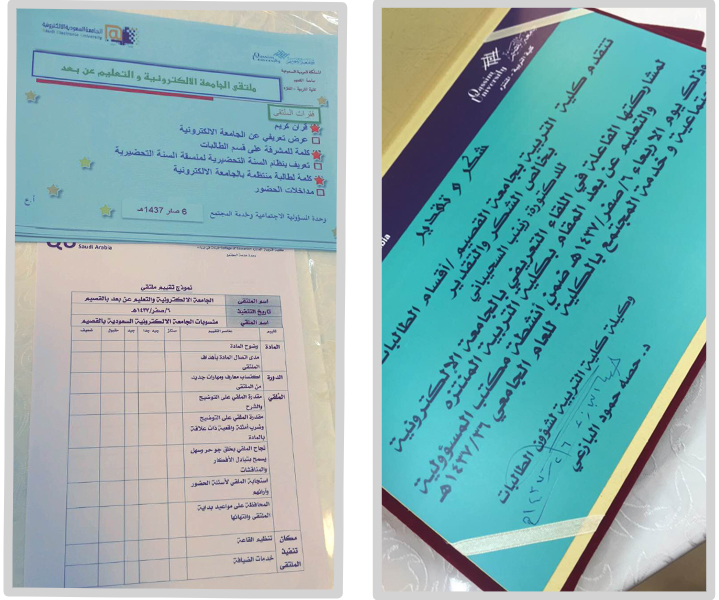 الجامعة السعودية الالكترونية
جامعة القصيم
Qassim University
المملكة العربية السعودية
جامعة القصيم
ملتقى الجامعة الالكترونية و التعليم عن بعد
فقرات الملتقى
قرآن كريم
عرض تعريفي عن الجامعة الالكترونية
كلمة للمشرفة على قسم الطالبات
تعريف بنظام السنة التحضيرية لمنسقة السنة التحضيرية
كلمة لطالبة منتظمة بالجامعة الالكترونية
مداخلات الحضور
6 صفر 1437هـ
وحدة المسؤولية الاجتماعية وخدمة المجتمع
Saudi Arabia
نموذج تقييم ملتقى
اسم الملتقى الجامعة الالكترونية والتعليم عن بعد بالقصيم
تاريخ التنفيذ ٦/صفر/١٤٣٧هـ
اسم الملقي منسوبات الجامعة الالكترونية السعودية بالقصيم
عناصر التقييم ممتاز جيد جدا جيد مقبول ضعيف
المادة وضوح المادة
مدى اتصال المادة بأهداف
الملتقى
الدورة اكتساب معارف ومهارات جديدة
من الملتقى
الملقي مقدرة الملقي على التوضيح
والشرح
مقدرة الملقي على التوضيح
وضرب أمثلة واقعية ذات علاقة
بالمادة
نجاح الملقي بخلق جو حر وسهل
يسمح بتبادل الأفكار
والمناقشات
استجابة الملقي لأسئلة الحضور
وآرائهم
المحافظة على مواعيد بداية
الملتقى وانتهائها
مكان تنظيم القاعة
تنفيذ خدمات الضيافة
الملتقى
Qassim University
كلية التربية
شكر و تقدير
تتقدم كلية التربية بجامعة القصيم /أقسام الطالبات
بخالص الشكر والتقدير
للدكتورة/ زينب السحيباني
لمشاركتها الفاعلة في اللقاء التعريفي بالجامعة الإلكترونية
والتعليم عن بعد المقام بكلية التربية
وذلك يوم الاربعاء ٦/صفر/١٤٣٧هـ ضمن أنشطة مكتب المسؤولية
وخدمة المجتمع بالكلية للعام الجامعي ١٤٣٧/٣٦هـ
وكيلة كلية التربية لشؤون الطالبات
د. حصه حمود البازعي